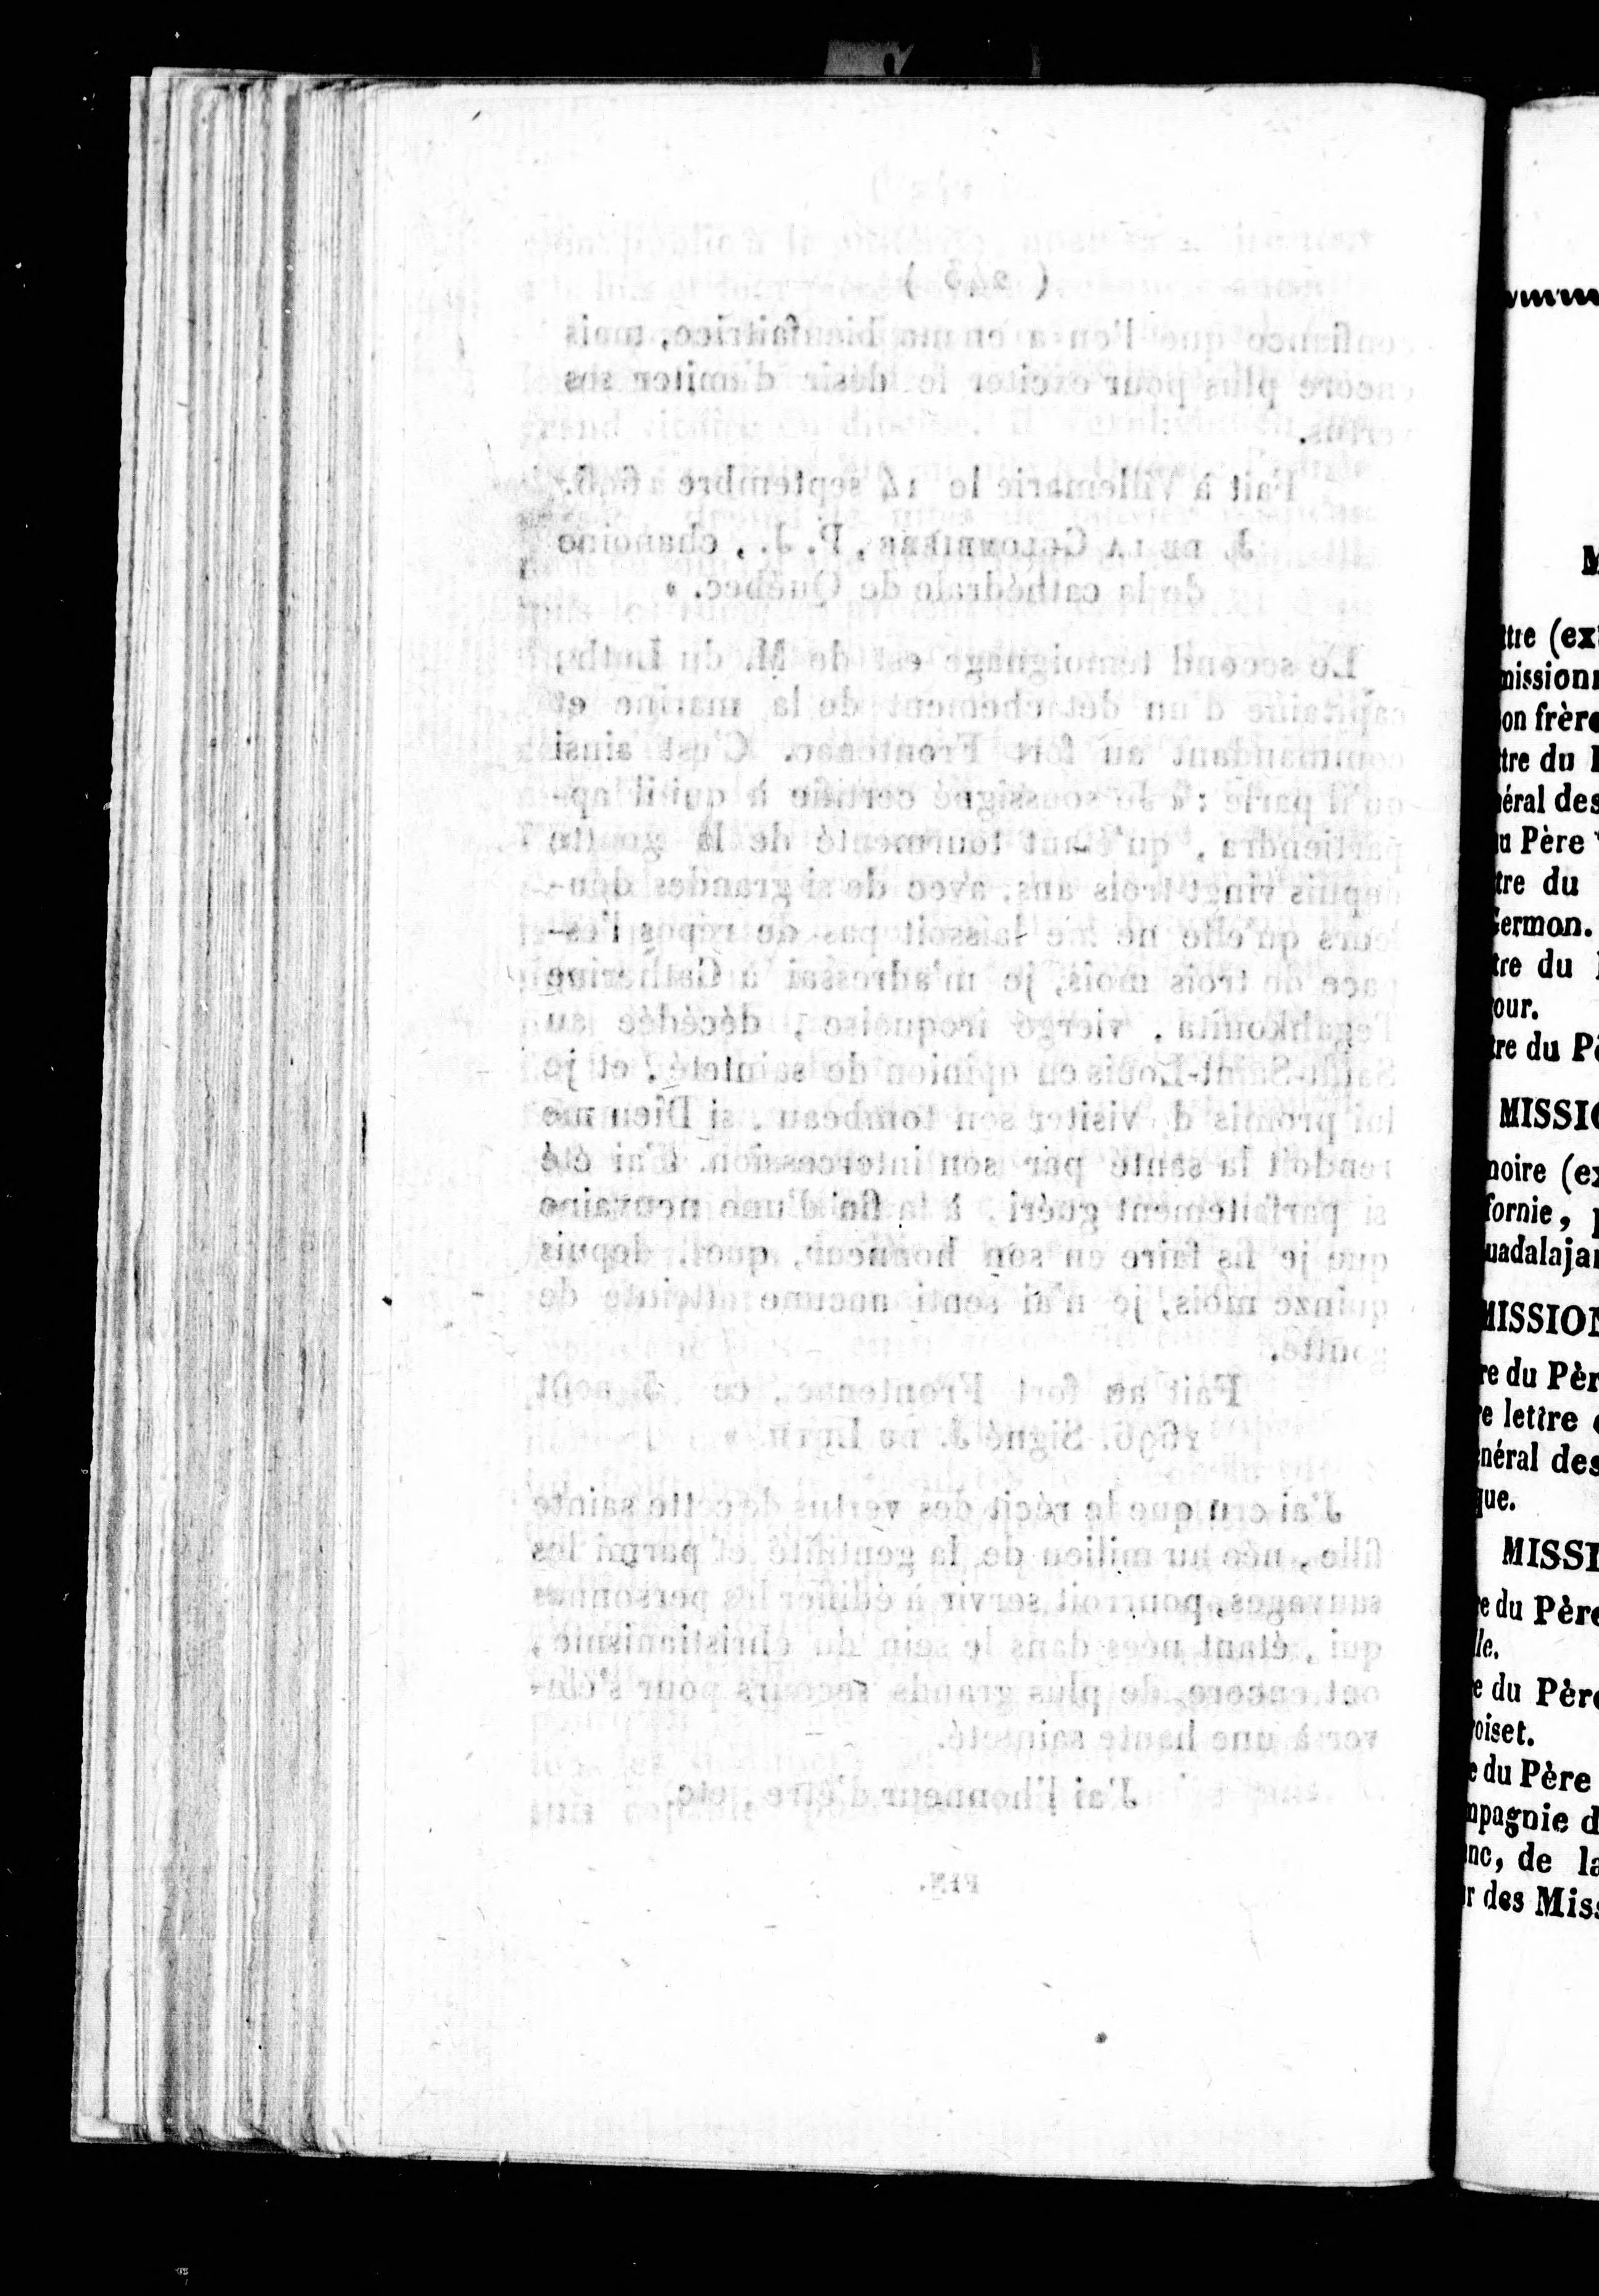 ( 243 )
confiance que l'on a en ma bienfaitrice, mais
encore plus pour exciter le désir d'imiter ses
vertus.
Fait à Villemarie le 14 septembre 1696.
J. DE LA COLOMBIÈRE, P. J., chanoine
de la cathédrale de Québec. »
Le second témoignage est de M. du Luth,
capitaine d'un détachement de la marine et
commandant au fort Frontenac. C'est ainsi
qu'il parle : « Je soussigné certifie à qui il ap-
partiendra, qu'étant tourmenté de la goutte
depuis vingt-trois ans, avec de si grandes dou-
leurs qu'elle ne me laissoit pas de repos l'es-
pace de trois mois, je m'adressai à Catherine
Tegahkouita, vierge iroquoise, décédée au
Sault-Saint-Louis en opinion de sainteté, et je
lui promis de visiter son tombeau, si Dieu me
rendoit la santé par son intercession. J'ai été
si parfaitement guéri, à la fin d'une neuvaine
que je fis faire en son honneur, que, depuis
quinze mois, je n'ai senti aucune atteinte de
goutte.
Fait au fort Frontenac, ce août
1696. Signé J. DU LUTH. »
J'ai cru que le récit des vertus de cette sainte
fille, née au milieu de la gentilité et parmi les
sauvages, pourroit servir à édifier les personnes
qui, étant nées dans le sein du christianisme,
ont encore de plus grands secours pour s'éle-
ver à une haute sainteté.
J'ai l'honneur d'être, etc.
FIN.
M
ttre (ex
missionn
on frère
tre du
éral des
u Père
tre du
Germon.
tre du
our.
tre du Pè
MISSIO
moire (ex
fornie, p
uadalajar
MISSION
re du Pèr
e lettre
énéral des
que.
MISSI
e du Père
le.
e du Père
oiset.
e du Père
mpagnie d
nc, de la
r des Miss